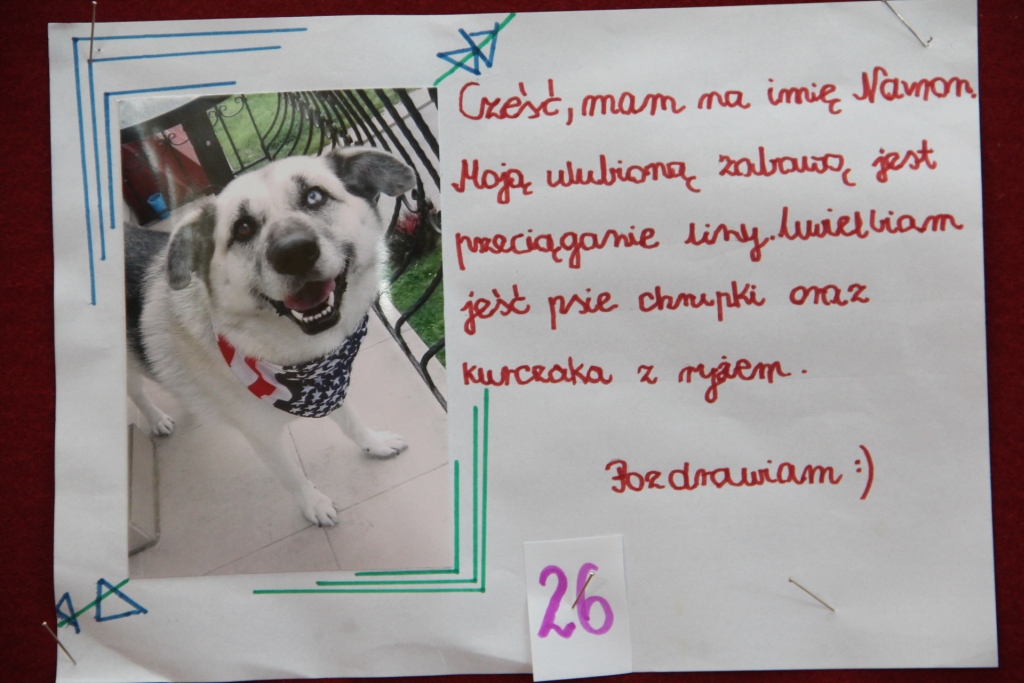 Cześć, mam na imię Namon.
Moją ulubioną zabawą jest
przeciąganie liny. Uwielbiam
jeść psie chrupki oraz
kurczaka z ryżem.
Pozdrawiam :)
26